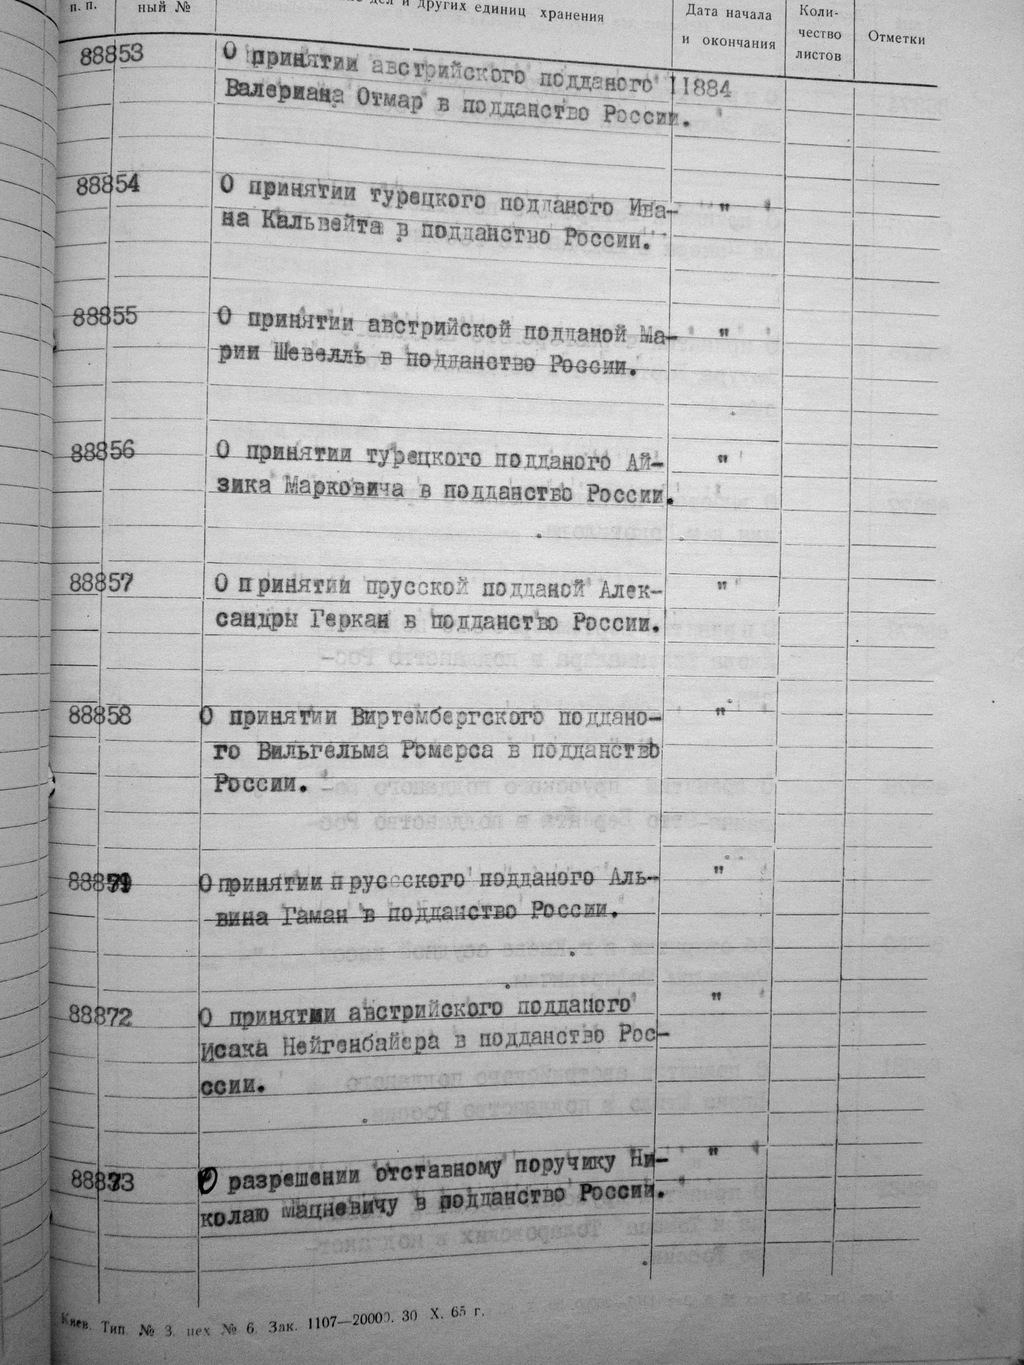 п. п.
ный №
дел и других единиц хранения
Дата начала
и окончания
Коли-
чество
листов
Отметки
88853 О принятии австрийского подданого 1884
Валериана Отмар в подданство России.
88854 О принятии турецкого подданого Ива- "
на Кальвейта в подданство России.
88855 О принятии австрийской подданой Ма- "
рии Шевелль в подданство России.
88856 О принятии турецкого подданого Ай- "
зика Марковича в подданство России.
88857 О принятии прусской подданой Алек- "
сандры Геркан в подданство России.
88858 О принятии Виртембергского поддано- "
го Вильгельма Ромерса в подданство
России.
О принятии прусского подданого Аль- "
вина Гаман в подданство России.
88872 О принятии австрийского подданого "
Исака Нейгенбайера в подданство Рос-
ссии.
О разрешении отставному поручику Ни- "
колаю Мацневичу в подданство России.
Киев. Тип. № 3. цех № 6. Зак. 1107—20000. 30 X. 65 г.